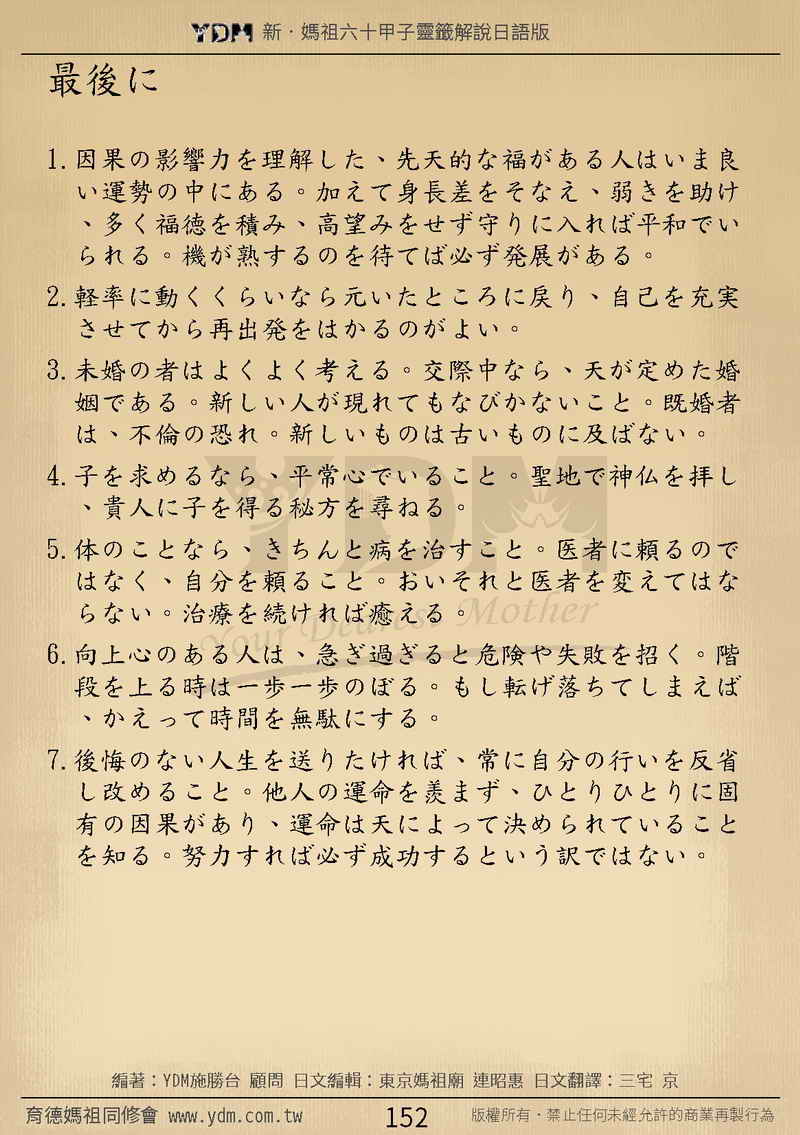 YDM 新．媽祖六十甲子靈籤解說日語版
最後に
1. 因果の影響力を理解した、先天的な福がある人はいま良
い運勢の中にある。加えて身長差をそなえ、弱きを助け
、多く福徳を積み、高望みをせず守りに入れば平和でい
られる。機が熟するのを待てば必ず発展がある。
2. 軽率に動くくらいなら元いたところに戻り、自己を充実
させてから再出発をはかるのがよい。
3. 未婚の者はよくよく考える。交際中なら、天が定めた婚
姻である。新しい人が現れてもなびかないこと。既婚者
は、不倫の恐れ。新しいものは古いものに及ばない。
4. 子を求めるなら、平常心でいること。聖地で神仏を拝し
、貴人に子を得る秘方を尋ねる。
5. 体のことなら、きちんと病を治すこと。医者に頼るので
はなく、自分を頼ること。おいそれと医者を変えてはな
らない。治療を続ければ癒える。
6. 向上心のある人は、急ぎ過ぎると危険や失敗を招く。階
段を上る時は一歩一歩のぼる。もし転げ落ちてしまえば
、かえって時間を無駄にする。
7. 後悔のない人生を送りたければ、常に自分の行いを反省
し改めること。他人の運命を羨まず、ひとりひとりに固
有の因果があり、運命は天によって決められていること
を知る。努力すれば必ず成功するという訳ではない。
YDM
Your Dearest Mother
編著：YDM施勝台 顧問 日文編輯：東京媽祖廟 連昭惠 日文翻譯：三宅 京
育德媽祖同修會 www.ydm.com.tw 152 版權所有．禁止任何未經允許的商業再製行為